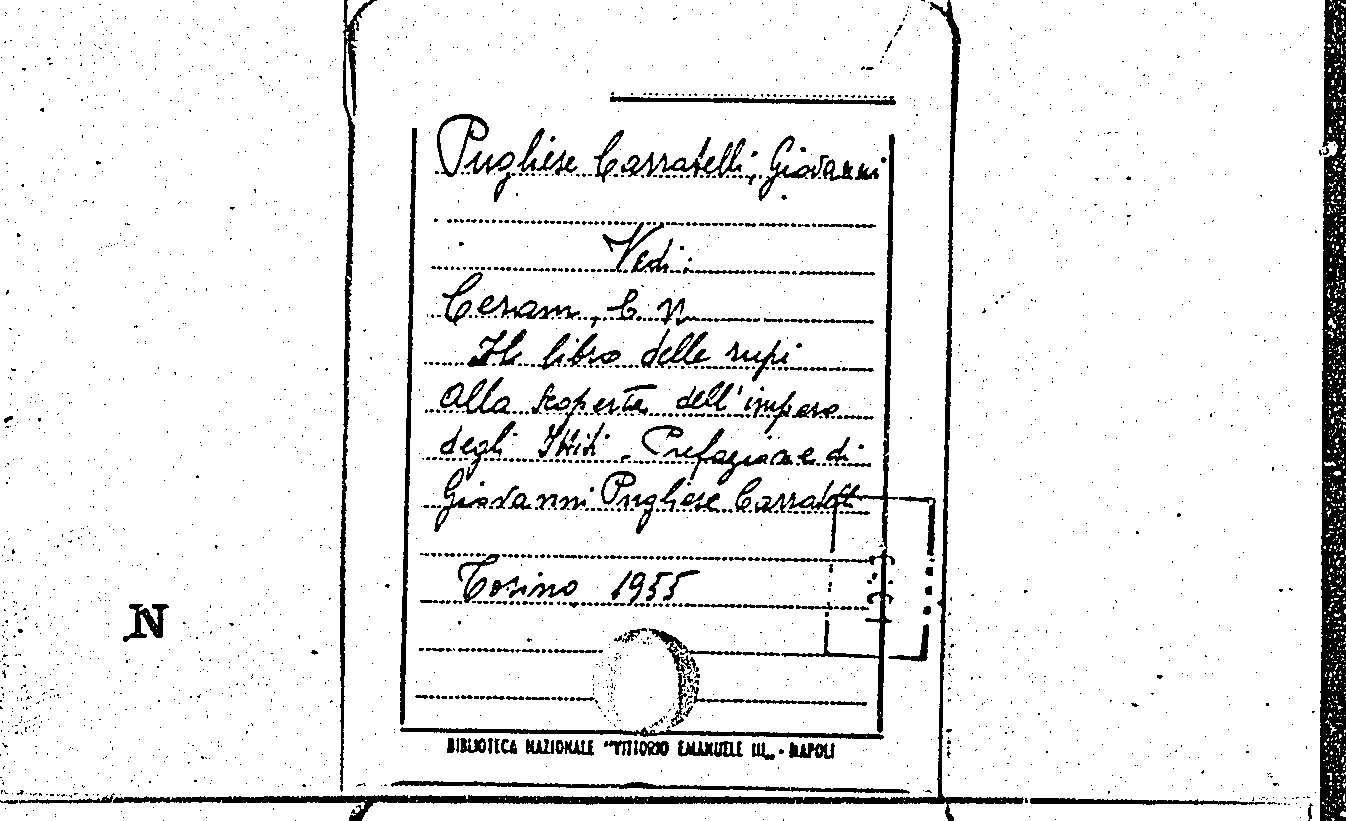 Pugliese Carratelli, Giovanni
Vedi:
Ceram, C. W.
Il libro delle rupi
alla scoperta dell'impero
degli Ittiti. Prefazione di
Giovanni Pugliese Carratelli
Torino 1955
N
BIBLIOTECA NAZIONALE "VITTORIO EMANUELE III" - NAPOLI